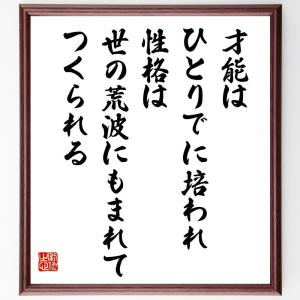 才能は
ひとりでに培われ
性格は
世の荒波にもまれて
つくられる